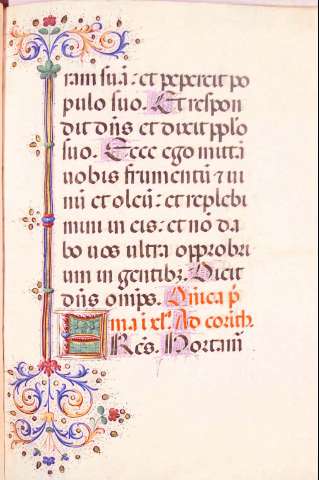 ram suā: et pepercit po
pulo suo. Et respon
dit dn̄s et dixit pplo
suo. Ecce ego mittā
uobis frumentū ⁊ ui
nū et oleū: et replebi
mini in eis: et nō da
bo uos ultra opprobri
um in gentibꝫ. Dicit
dn̄s om̄ps. Dn̄ica p̄
ma i xl. Ad corith.
FRēs. Hortam̄